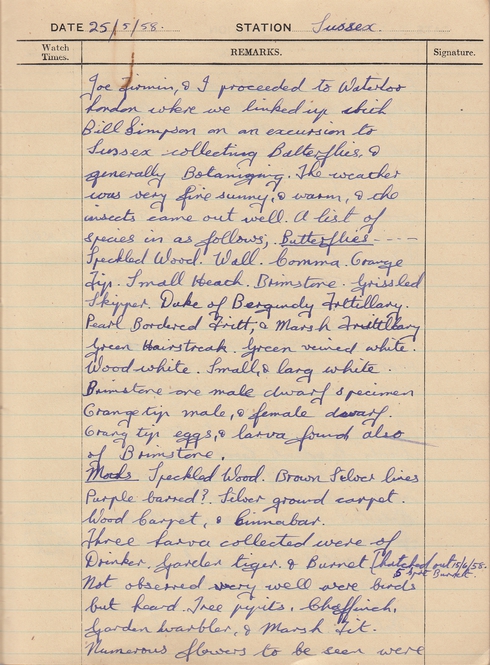 DATE 25/5/58. STATION Sussex.
Watch Times. REMARKS. Signature.
Joe Firmin, & I proceeded to Waterloo
London where we linked up with
Bill Simpson on an excursion to
Sussex collecting Butterflies, &
generally Botanizing. The weather
was very fine sunny, & warm, & the
insects came out well. A list of
species in as follows; Butterflies ----
Speckled Wood. Wall. Comma. Orange
Tip. Small Heath. Brimstone. Grissled
Skipper. Duke of Bergundy Frttillary.
Pearl Bordered Fritt, & Marsh
Green Hairstreak. Green veined white.
Wood white. Small, & larg white.
Brimstone one male dwarf specimen
Orange tip male, & female dwarf.
Orang tip eggs, & larva found also
of Brimstone.
Moths Speckled Wood. Brown Silver lines
Purple barred?. Silver ground carpet.
Wood Carpet, & Cinnabar.
Three larva collected were of
Drinker. Garden tiger. & Burnet (hatched out 15/6/58.
5 spot Burnet.
Not observed very well were birds
but heard. Tree pipits, Chaffinch,
Garden warbler, & Marsh Tit.
Numerous flowers to be seen were